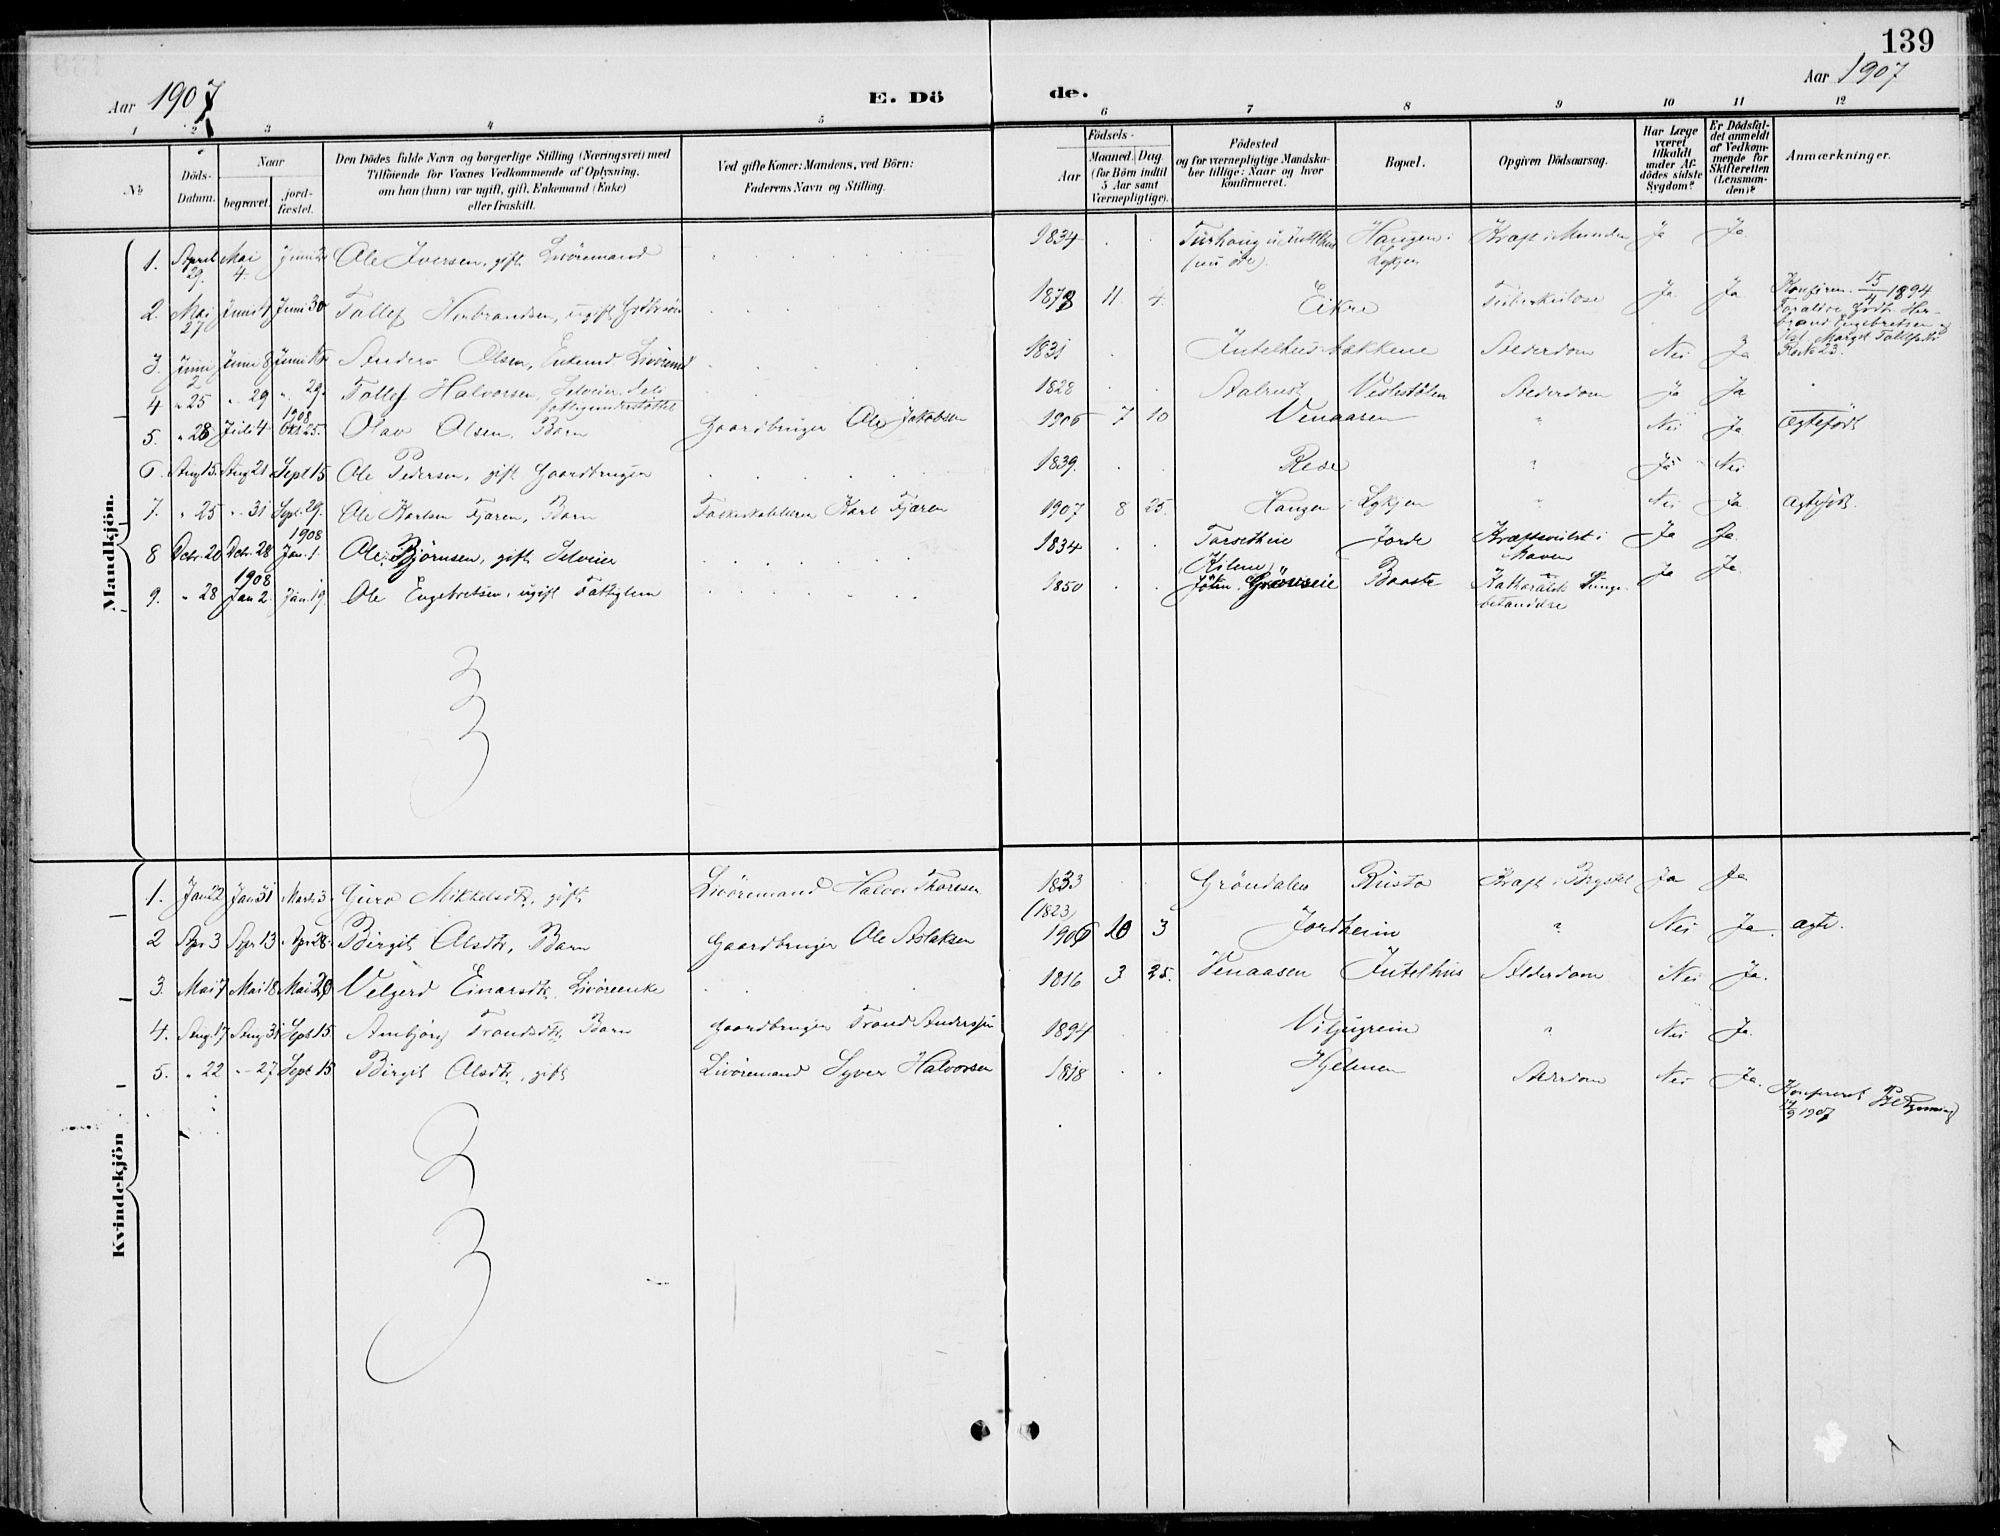 139
Aar 1907 E. Dö de. Aar 1907
1 2 3 4 5 6 7 8 9 10 11 12
№
Döds-Datum.
Naar
begravet.
jord-fæstet.
Den Dödes fulde Navn og borgerlige Stilling (Næringsvei) med
Tilföiende for Voxnes Vedkommende af Oplysning,
om han (hun) var ugift, gift, Enkemand (Enke)
eller fraskilt.
Ved gifte Koner: Mandens, ved Börn:
Faderens Navn og Stilling.
Födsels-
Aar
Maaned. Dag.
(for Börn indtil
5 Aar samt
Værnepligtige).
Födested
og for værnepligtige Mandska-
ber tillige: Naar og hvor
konfirmeret.
Bopæl.
Opgiven Dödsaarsag.
Har Læge
været
tilkaldt
under Af-
dödes sidste
Sygdom?
Er Dödsfal-
det anmeldt
af Vedkom-
mende for
Skifteretten
(Lensman-
den)?
Anmærkninger.
Mandkjön.
1. April 29. Mai 4. Juni 2 Ole Iversen, gift Livöremand 1834 Haugen i Lykjen Kræft i Munden Ja Ja
2. Mai 27 Juni 4 Juni 30 Tollef Herbrandsen, ugift 1878 11. 4. Eikre Tuberkulose Ja Ja Konfirm. 15/4 1894
Forældre Herbrand Engebretsen og Margit
3. Juni 2 Juni 8 Juni Anders Olsen, Enkemd Livöremd 1831 Intelhus bakkene Alderdom Nei Ja
4 " 25 " 29 " 29. Tollef Halvorsen, Selveier, dels fattigunderstöttet 1828 Aalrust Veslestölen Alderdom Ja Ja
5. " 28 Juli 4 1908 Okt 25. Olav Olsen, Barn Gaardbruger Ole Jakobsen 1906 7 10 Venaasen " Nei Ja Ægtefödt
6. Aug 15. Aug 21 Sept 15 Ole Pedersen, gift Gaardbruger 1839. Rede " Ja Nei
7. " 25 " 31 Sept. 29. Ole Karlsen Fjæren, Barn Karl Fjæren 1907 8 25. Haugen i Lykjen " Nei Ja Ægtefödt.
8 Octr. 20 Octr. 28 1908 Jan. 1. Ole Björnsen, gift Selveier 1834 Jorde Kræftsvulst i Maven Ja Ja.
9. " 28 1908 Jan 2. Jan. 19 Ole Engebretsen, ugift Fattiglem 1850 Baaste Katharalsk Lungebetændelse Ja Ja.
Kvindekjön
1. Jan 22 Jan 31 Marts 3 Guro Mikkelsdtr., gift Livöremand Halvor Thorsen 1833 (1823) Gröndalen Rusto Kræft i Brystet Ja Ja
2 Apr 3 Apr 13 Apr 28. Birgit Olsdtr, Barn Gaardbruger Ole Aslaksen 1906 10 3 Jordheim " Nei Ja. ægte.
3. Mai 7 Mai 18 Mai 20 Velgerd Einarsdtr. Livöreenke 1816 3 25. Venaasen Intelhus Alderdom Nei Ja.
4. Aug. 17 Aug 31 Sept 15 Ambjörg Trondsdtr, Barn Gaardbruger Trond Andersen 1894 Viljugrein " Nei Ja.
5. " 22 " 27 Sept 15 Birgit Olsdtr., gift Livöremand Syver Halvorsen 1818 Hjelmen Alderdom Nei Ja.
Konfereret 1907